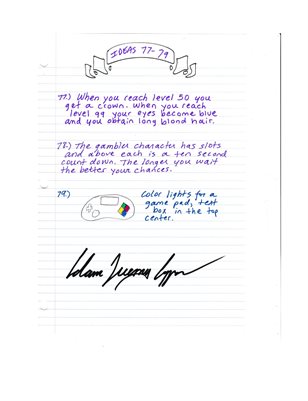 IDEAS 77-79
77.) When you reach level 50 you
get a clown. When you reach
level 99 your eyes become blue
and you obtain long blond hair.
78.) The gambler character has slots
and above each is a ten second
count down. The longer you wait
the better your chances.
79.)
Color lights for a
game pad, text
box in the top
center.